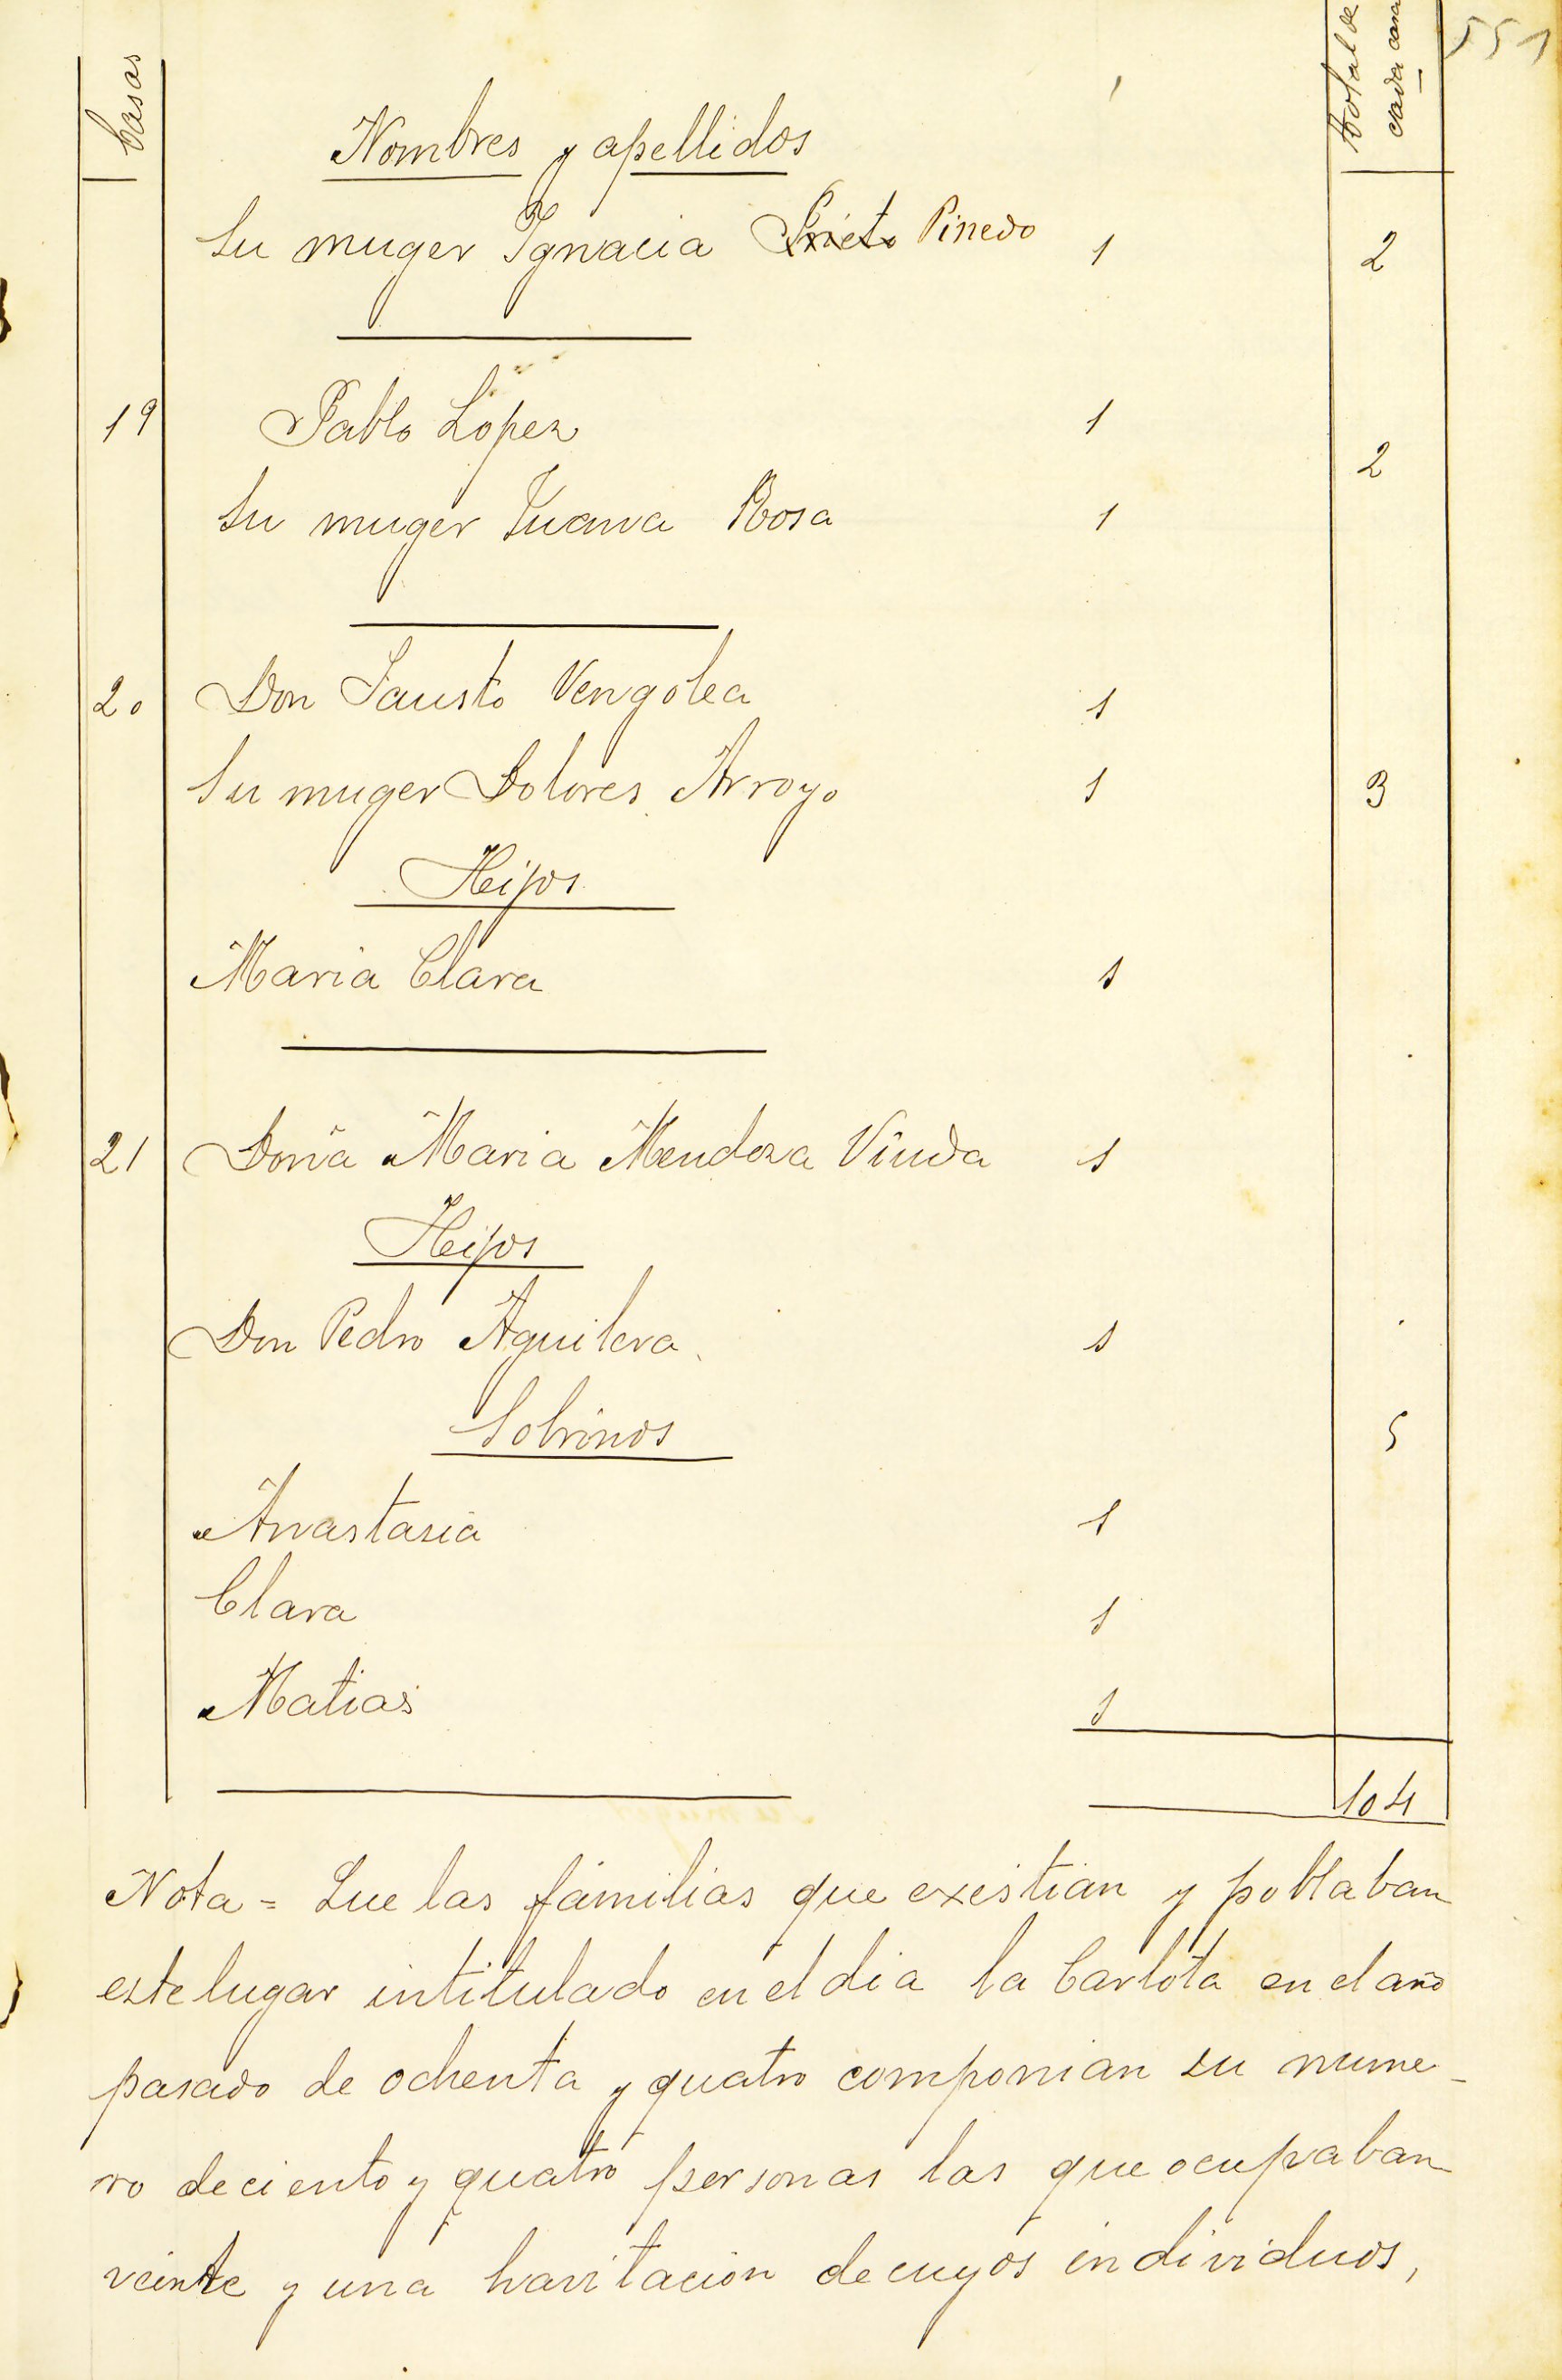 551
Casas
Nombres y apellidos
total de
cada casa
Su muger Ignacia Prieto Pinedo 1 2
19 Pablo López 1
2
Su muger Juana Rosa 1
20 Don Fausto Vengolea 1
Su muger Dolores Arroyo 1 3
Hijos
Maria Clara 1
21 Doña Maria Mendoza Viuda 1
Hijos
Don Pedro Aguilera 1
Sobrinos 5
Anastasia 1
Clara 1
Matias 1
104
Nota = Que las fámilias que existian y poblaban
este lugar intitulado en el dia la Carlota en el año
pasado de ochenta y quatro componian su nume-
ro de ciento y quatro personas las que ocupaban
veinte y una havitacion de cuyos individuos,